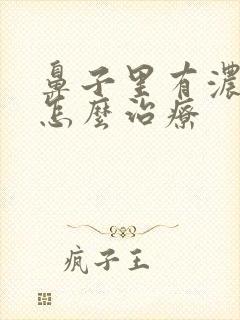 鼻子里有濃
怎麼治療
疯子王